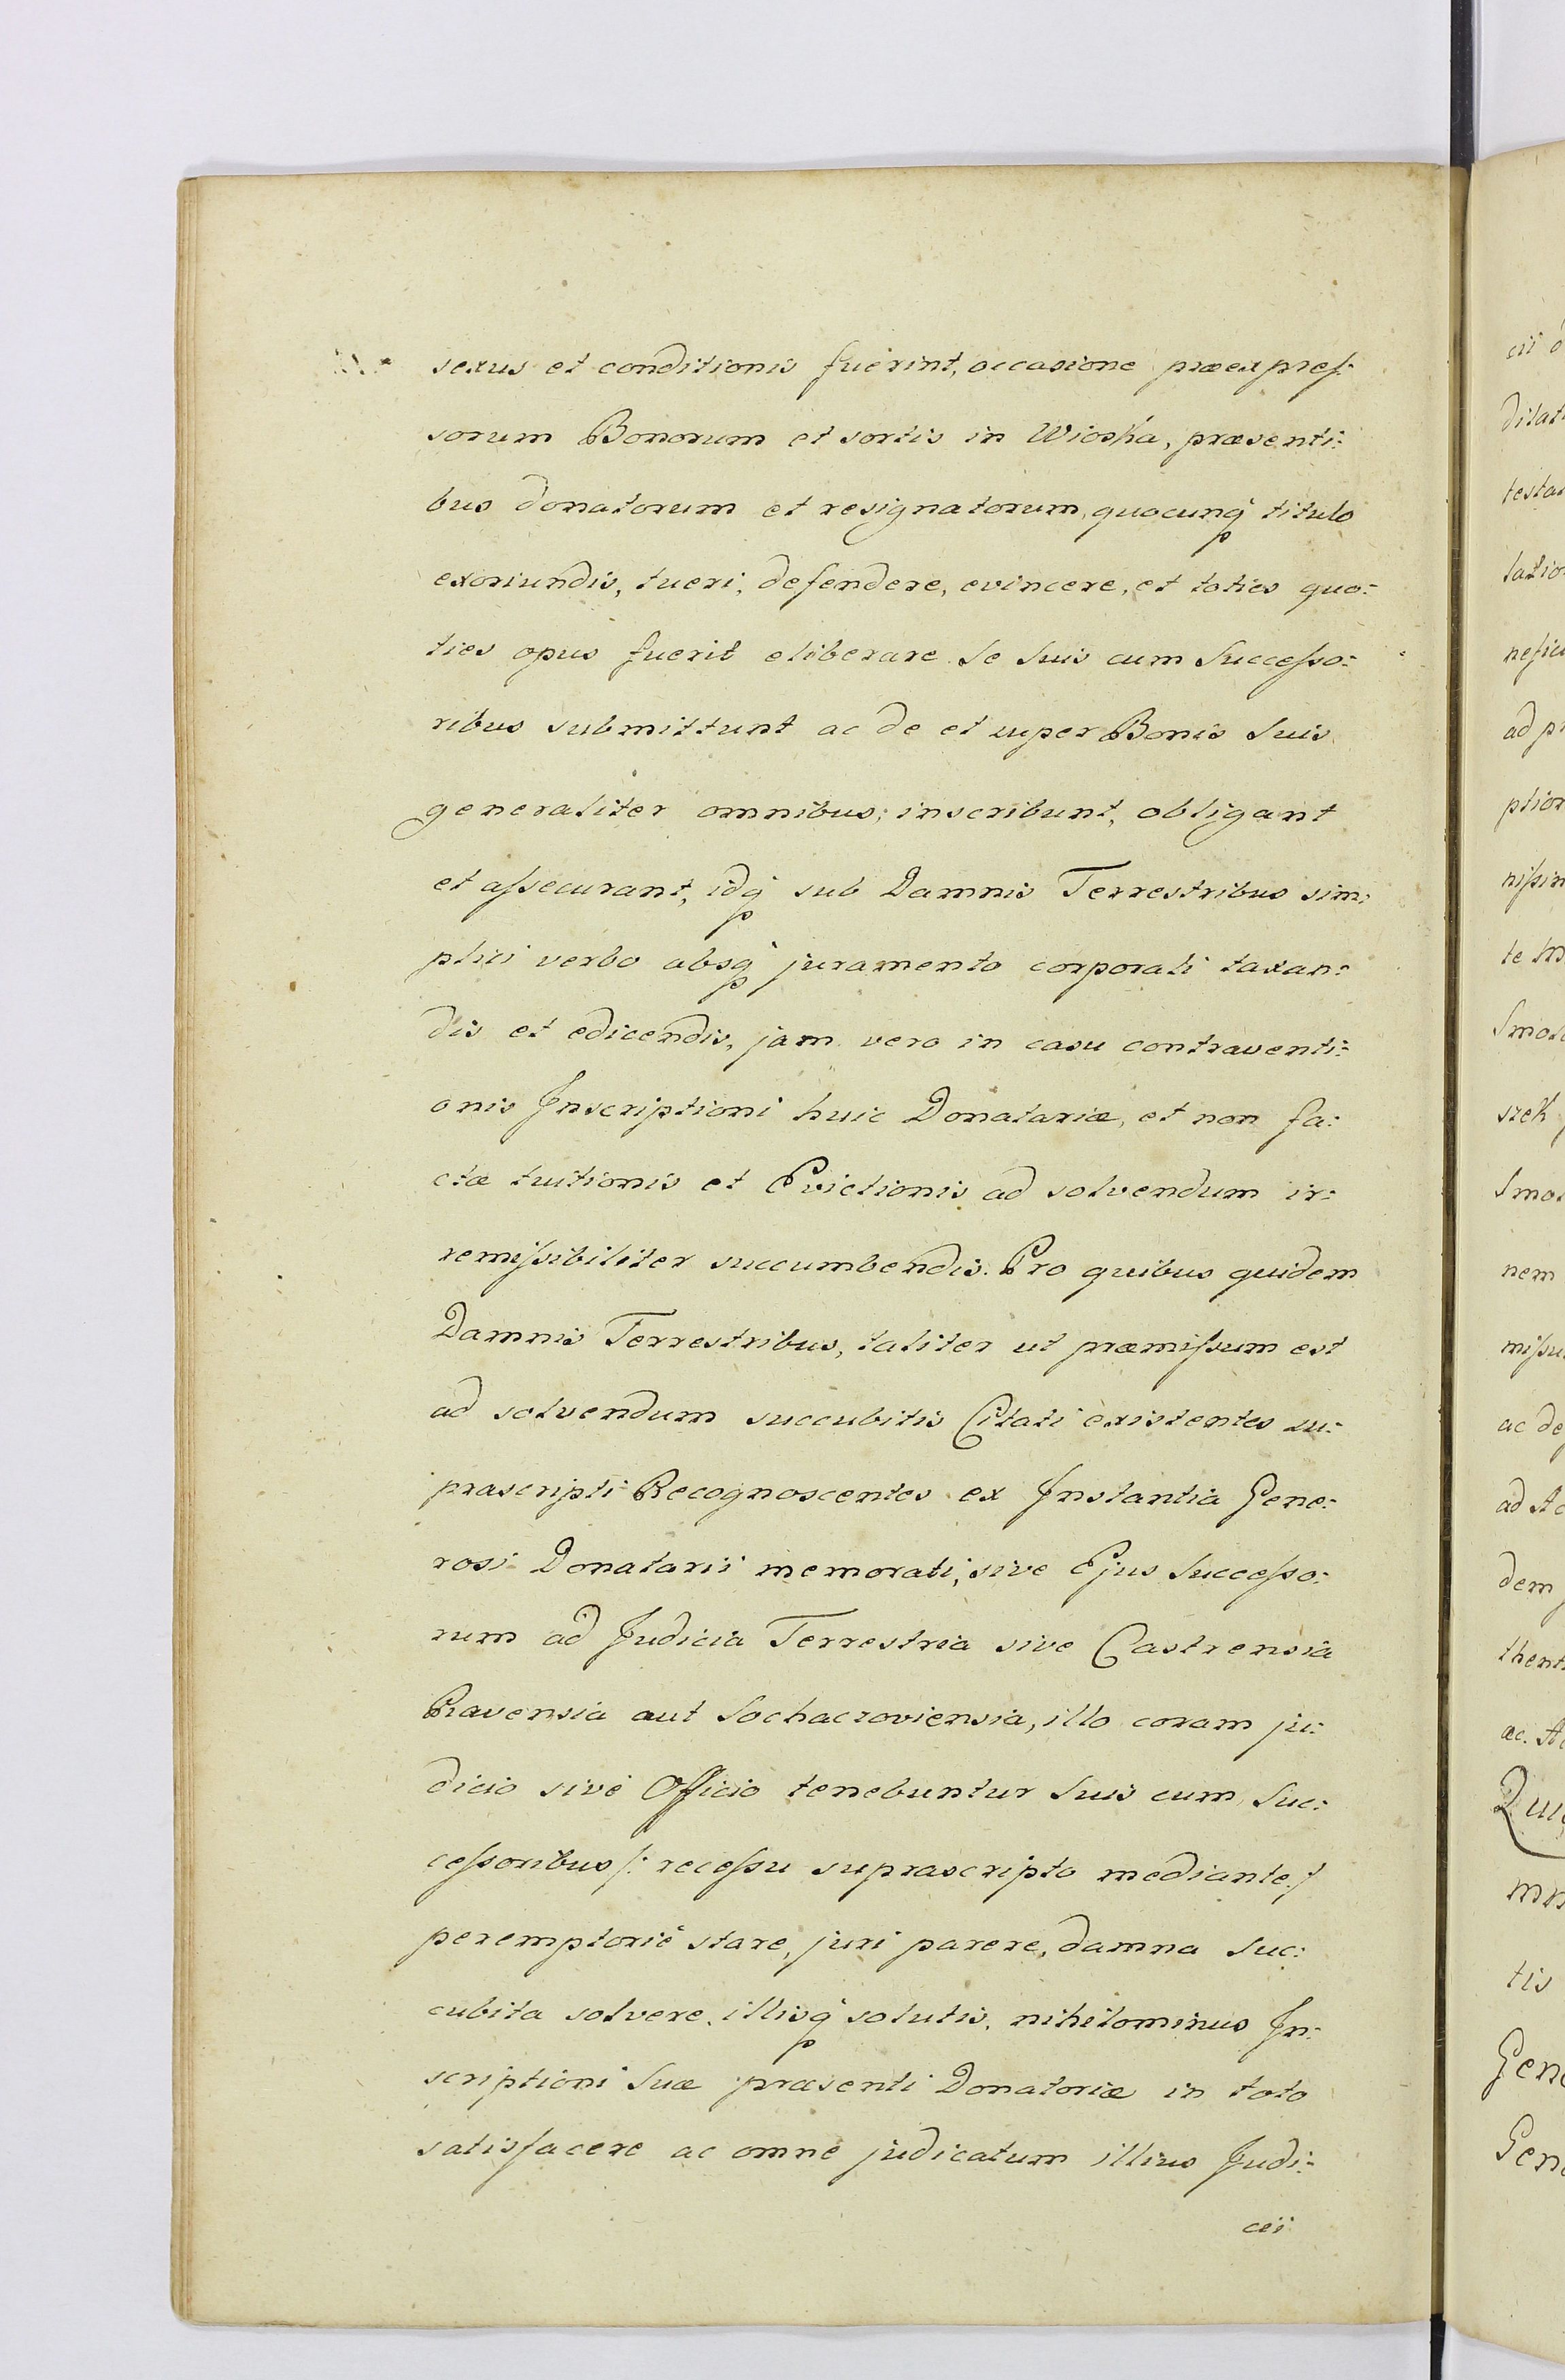 sexus et conditionis fuerint, occasione præexpreſ:
sorum Bonorum et sortis in Wioska, præsenti:
bus donatorum et resignatorum, quocunq titulo
exoriundis, tueri, defendere, evincere, et toties quo:
ties opus fuerit eliberare se suis cum Succeſso:
ribus submittunt ac de et super Bonis Suis
generaliter omnibus, inscribunt, obligant
et aſsecurant, idq sub Damnis Terrestribus sim:
plici verbo absq juramento corporali taxan:
dis et edicendis, jam vero in casu contraventi:
onis Inscriptioni huic Donatariæ, et non fa:
ctæ tuitionis et Evictionis ad solvendum ir:
remiſsibiliter succumbendis. Pro quibus quidem
Damnis Terrestribus, taliter ut præmiſsum est
ad solvendum succubitis Citati existentes su:
prascripti Recognoscentes ex Instantia Gene:
rosi Donatarii memorati, sive Ejus Succeſso:
rum ad Judicia Terrestria sive Castrensia
Ravensia aut Sochacroviensia, illo coram ju:
dicio sive Officio tenebuntur Suis cum Suc:
ceſsoribus /: receſsu suprascripto mediante :/
peremptorie stare, juri parere, damna suc:
cubita solvere, illisq solutis, nihilominus In:
scriptioni Suæ præsenti Donatoriæ in toto
satisfacere ac omne judicatum illius Judi:
cii
cii
dilat
testa
tatio
nefici
ad pr
ption
niſsim
te
Smol
szek
Smol
nem
miſsu
ac de
ad Ac
dem
thent
ac. Ac
tis
Gene
Gene